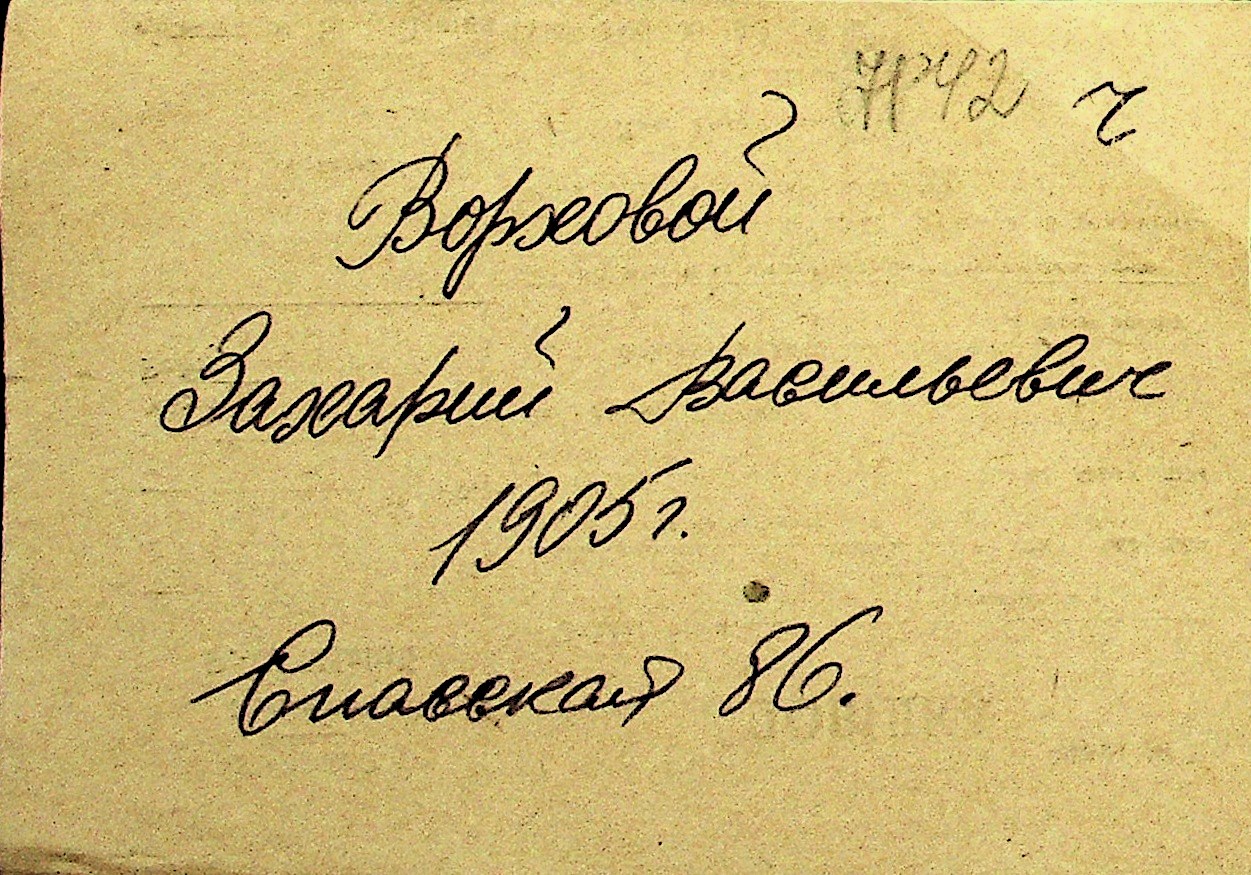 ч
Ворховой
Захарий Васильевич
1905 г.
Спасская 86.